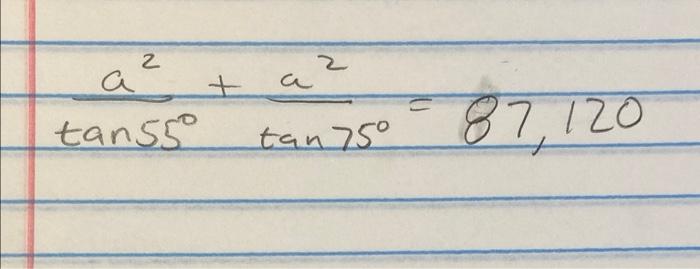 a²/tan55° + a²/tan75° = 87,120